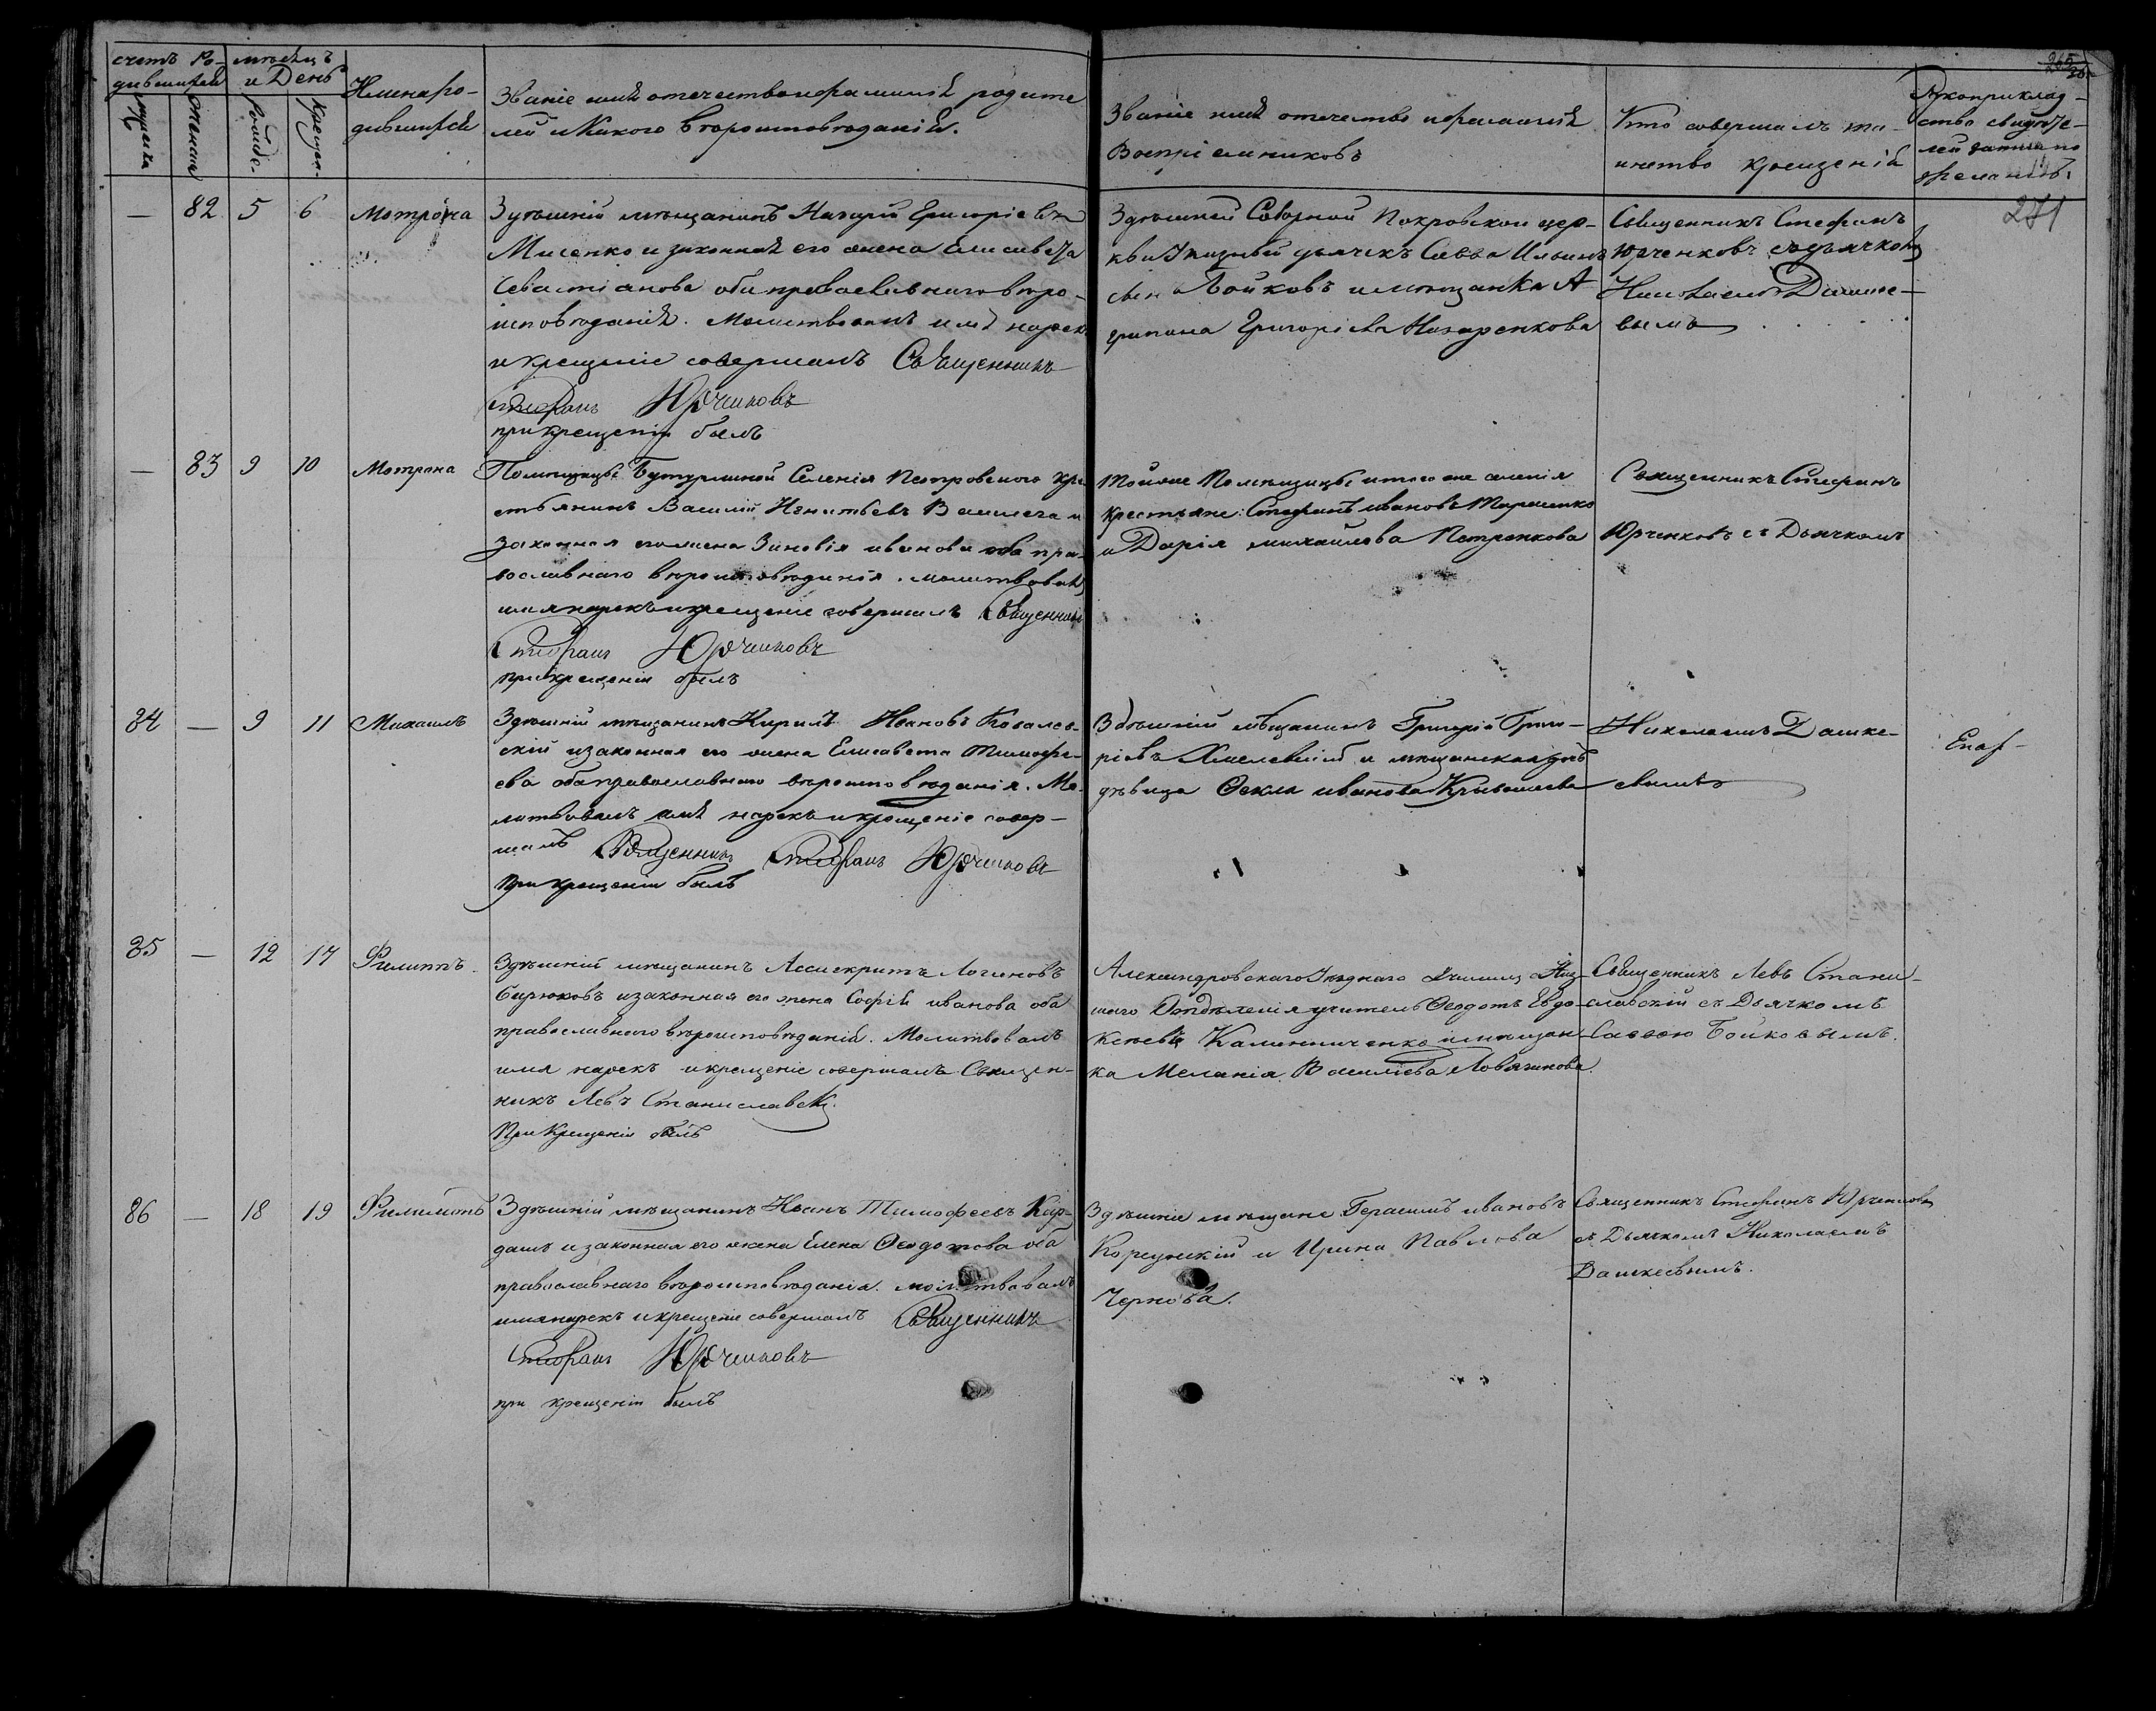 счетъ Ро-
дившихся
мѣсяцъ
и День
мужеска
женска
рожде.
Крещен.
Имена ро-
дившихся
Званіе имя отечество и фамилія родите
лей и Какого вѣроисповѣданія.
Званіе имя отечество и фамилія
Воспріемниковъ
Кто совершалъ та-
инство крещенія
Рукоприклад-
ство свидѣте-
лей записи по
желанію.
265
271
— 82 5 6 Мотрона
Здѣшній мѣщанинъ Назарій Григоріевъ
Мисенко и законная его жена Елисавета
Севастіанова оба православнаго вѣро-
исповѣданія. Молитвовалъ имя нарекъ
и крещеніе совершалъ Священникъ
Стефанъ Юрченковъ
при крещеніи былъ
Здѣшней Соборной Покровской цер-
кви Указный дьячекъ Савва Ильинъ
сынъ Бойковъ и мѣщанка А
грипина Григоріева Назаренкова
Священникъ Стефанъ
Юрченковъ съ дьячкомъ
Николаемъ Дашке-
вымъ
— 83 9 10 Мотрона
Помѣщицы Бутурлиной Селенія Петровскаго кре
стьянинъ Василій Игнатьевъ и
законная его жена Зиновія иванова оба пра-
вославнаго вѣроисповѣданія. молитвовалъ
имя нарекъ и крещеніе совершалъ Священникъ
Стефанъ Юрченковъ
при крещеніи былъ
Той же Помѣщицы и того же селенія
крестьяне: Стефанъ ивановъ
и Дарія михайлова Петренкова
Священникъ Стефанъ
Юрченковъ съ Дьячкомъ
84 — 9 11 Михаилъ
Здѣшній мѣщанинъ Кирилъ Ивановъ Ковалев-
скій и законная его жена Елисавета Тимофе-
ева оба православнаго вѣроисповѣданія. Мо-
литвовалъ имя нарекъ и крещеніе совер-
шалъ Священникъ Стефанъ Юрченковъ
При крещеніи былъ
Здѣшній мѣщанинъ Григорій Григо-
ріевъ Хмелевскій и мѣщанская дочь
дѣвица Ѳекла иванова Кривошеева
Николаемъ Дашке-
евымъ
85 — 12 17 Филиппъ.
Здѣшній мѣщанинъ Ассикритъ Логиновъ
Бирюковъ и законная его жена Софія иванова оба
православнаго вѣроисповѣданія. Молитвовалъ
имя нарекъ и крещеніе совершалъ Священ-
никъ Левъ Станиславскій.
При Крещеніи былъ
Александровскаго Уѣзднаго Училища Низ-
шаго Отдѣленія учитель Ѳеодотъ Евдо-
кіевъ Калиниченко и мѣщан-
ка Меланія Василіева Ловягинова.
Священникъ Левъ Стани-
славскій съ Дьячкомъ
Саввою Бойковымъ.
86 — 18 19 Филимонъ
Здѣшній мѣщанинъ Иванъ Тимофеевъ Кар-
дашъ и законная его жена Елена Ѳеодотова оба
православнаго вѣроисповѣданія. молитвовалъ
имя нарекъ и крещеніе совершалъ Священникъ
Стефанъ Юрченковъ
при крещеніи былъ
Здѣшніе мѣщане Герасимъ ивановъ
Корсунскій и Ирина Павлова
Чернова.
Священникъ Стефанъ Юрченковъ
съ Дьячкомъ Николаемъ
Дашкеевымъ.